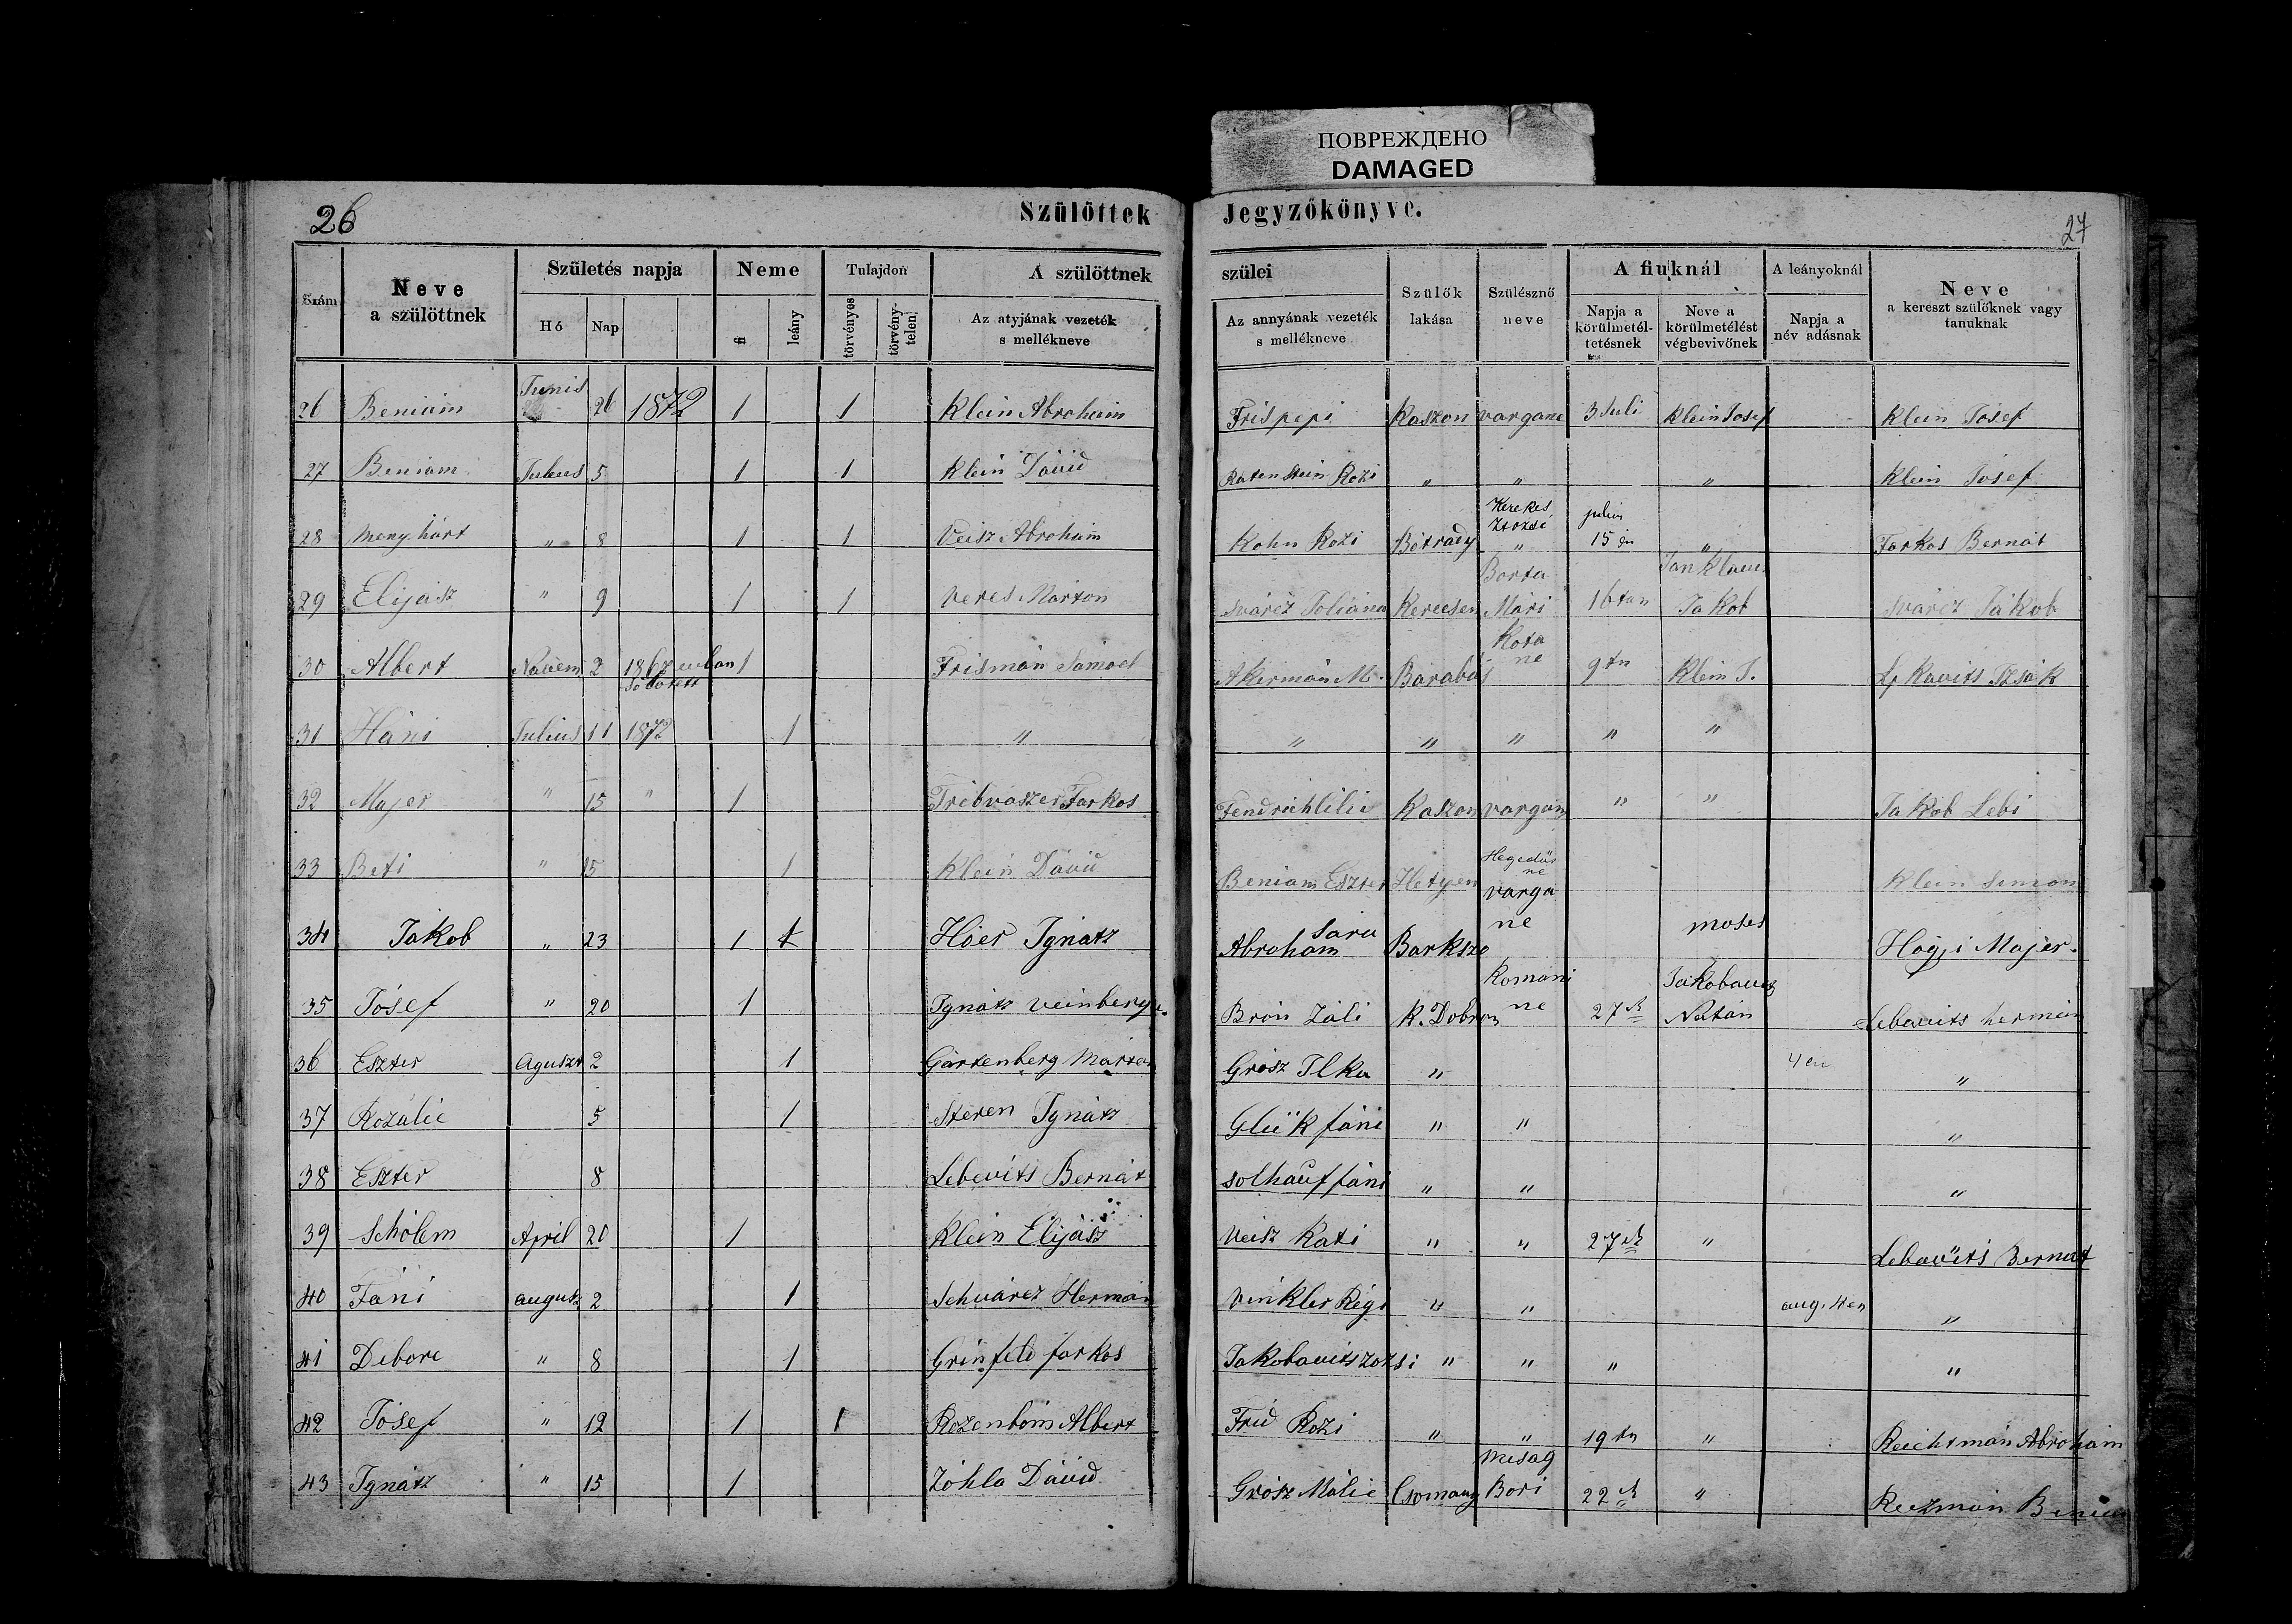 ПОВРЕЖДЕНО
DAMAGED
26
Szülöttek Jegyzőkönyve.
27
Szám
Neve a szülöttnek
Születés napja
Hó
Nap
Neme
fi
leány
Tulajdon
törvényes
törvény-telen
A szülöttnek szülei
Az atyjának vezeték s mellékneve
Az annyának vezeték s mellékneve
Szülők lakása
Szülésznő neve
A fiuknál
Napja a körülmetél-tetésnek
Neve a körülmetélést végbevivőnek
A leányoknál
Napja a név adásnak
Neve a kereszt szülőknek vagy tanuknak
26 Beniám Junis 26 1872 1 1 Klein Abrohám Fris pepi Kaszon vargane 3 Juli Klein Josef Klein Josef
27 Beniam Julius 5 1 1 Klein Dávid Rozi " " " Klein Josef
28 Menyhárt " 8 1 1 Veisz Abrohám Kohn Rozi Bótrady Kerekes " 15 " Farkas Bernát
29 Elijász " 9 1 1 Veres Márton Svárcz Juliána Kerecsen Borta Mári 16tan Jakob Svárcz Jákob
30 Albert Novem. 2 1867 1 Frismán Sámoel Akermán M. Barabás Kota ne 9tn Klein J. Izsák
31 Háni Julius 11 1872 1 " " " " " "
32 Majer " 15 " 1 Farkos Kaszon vargan " " Jakob Lebi
33 Beti " 15 1 Klein Dávid Beniam Eszter Hetyen Hegedüs ne Klein Simon
34 Jakob " 23 1 1 Hóer Ignátz Abroham Sára Barkszo varga ne moses Majer.
35 Jósef " 20 1 Ignátz Veinberger Bron Záli K. Dobron Romani ne 27 Nátán Lebovits
36 Eszter Aguszt 2 1 Gártenberg Márton Grosz Ilka " 4en "
37 Rozálie 5 1 Steren Ignátz Glük fáni " " "
38 Eszter 8 Lebevits Bernát fáni " " "
39 Schólem April 20 1 Klein Elijász Veisz Kati " " 27 " Lebovits Bernát
40 Fáni august 2 1 Schvárcz Herman Vinkler Régi " " aug. 4en "
41 Debore " 8 1 Grinfeld farkos Jakobovits zozsi " " " "
42 Jósef " 12 1 1 Rozenbóm Albert Frid Rozi " " 19tn " Reichsmán Abrohám
43 Ignátz " 15 1 Zóhla Dávid Grósz Málie Csomany Misag Bori 22 "